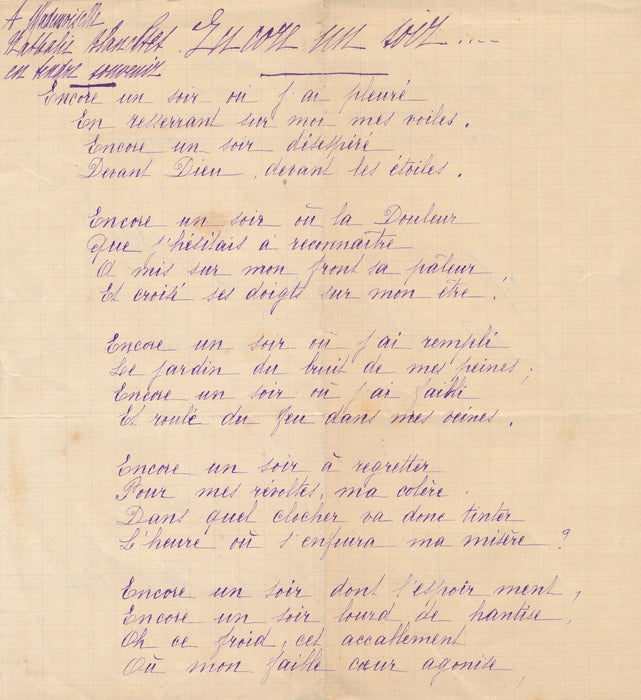 A Mademoiselle
Nathalie Blanchet
en tendre souvenir
Encore un soir ....
Encore un soir où j'ai pleuré
En resserrant sur moi mes voiles.
Encore un soir désespéré
Devant Dieu, devant les étoiles.
Encore un soir où la Douleur
Que j'hésitais à reconnaître
A mis sur mon front sa pâleur,
Et croisé ses doigts sur mon être.
Encore un soir où j'ai rempli
Le jardin du bruit de mes peines;
Encore un soir où j'ai failli
Et roulé du feu dans mes veines.
Encore un soir à regretter
Pour mes révoltes, ma colère.
Dans quel clocher va donc tinter
L'heure où s'enfuira ma misère ?
Encore un soir dont l'espoir ment,
Encore un soir lourd de hantise,
Oh ce froid, cet accablement
Où mon faible cœur agonise,